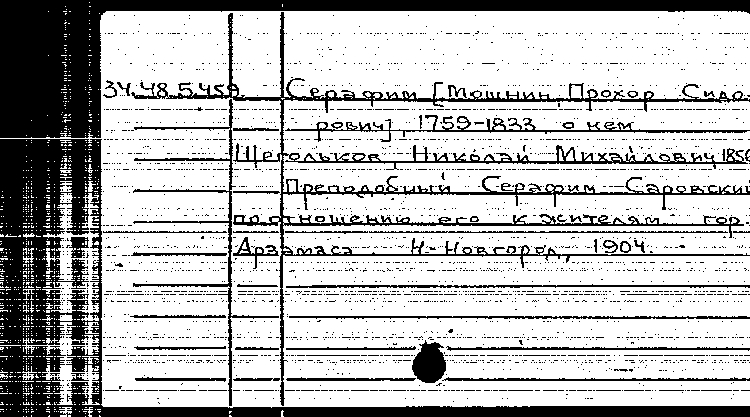 34.48.5.459. Серафим [Мошнин, Прохор Сидо-
рович], 1759-1833 о нем
Щегольков, Николай Михайлович, 1856
Преподобный Серафим Саровский
по отношению его к жителям гор.
Арзамаса. Н.-Новгород, 1904.